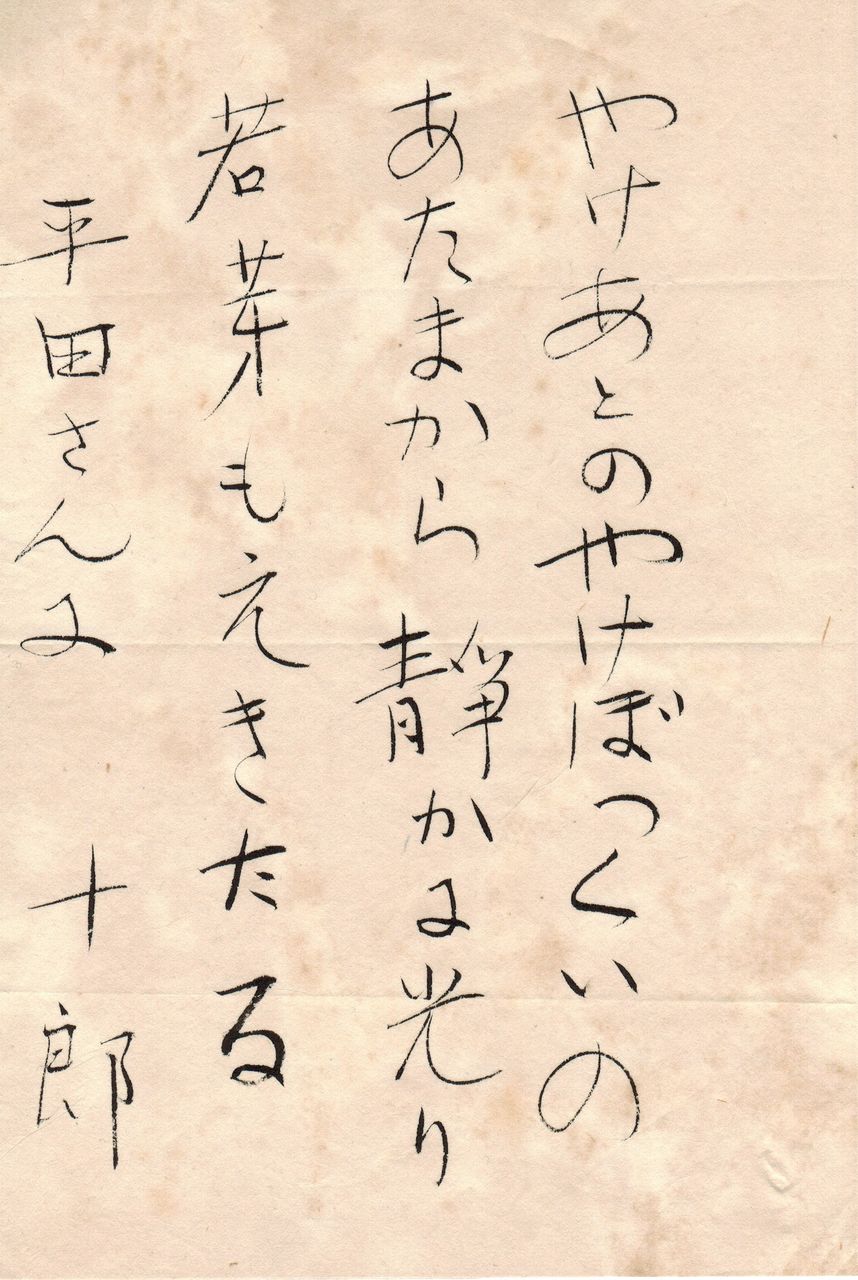 やけあとのやけぼつくいの
あたまから靜かに光り
若芽もえきたる
平田さんに 十郎